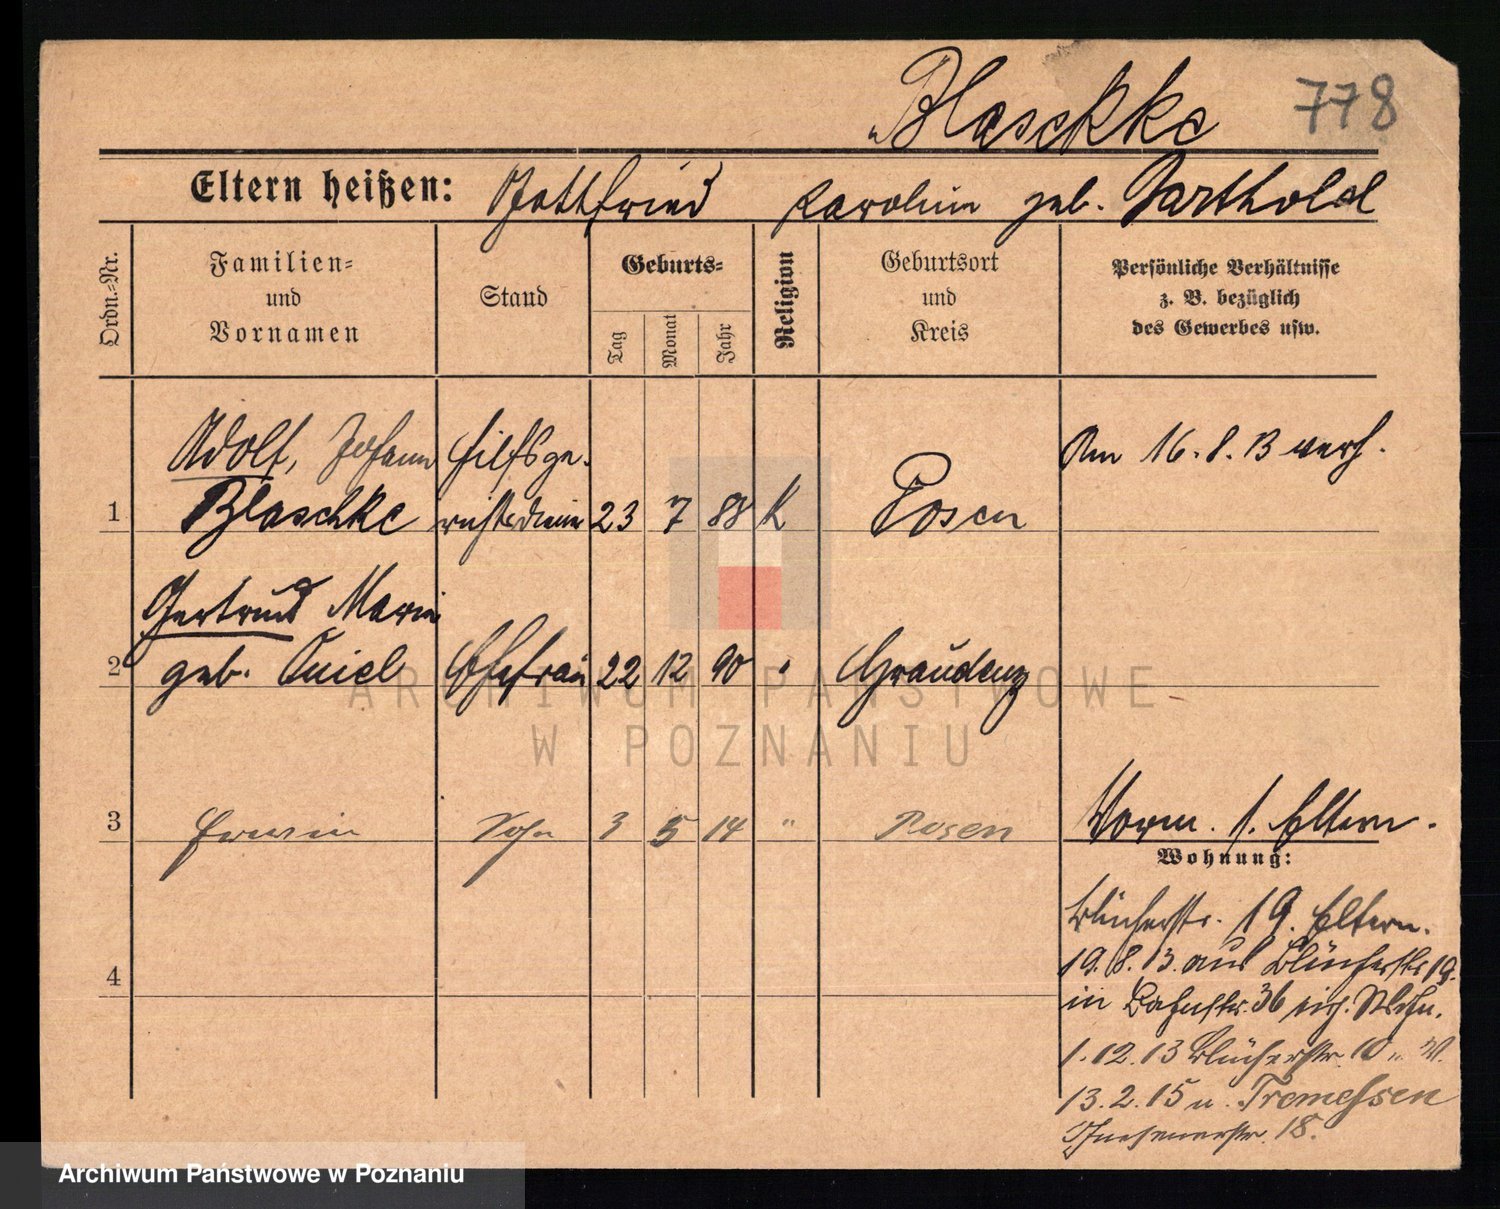 Blaschke 778
Eltern heißen: Gottfried Karolina geb. Barthold
Ordn.-Nr.
Familien-
und
Vornamen
Stand
Geburts-
Tag
Monat
Jahr
Religion
Geburtsort
und
Kreis
Persönliche Verhältnisse
z. B. bezüglich
des Gewerbes usw.
Adolf, Johann Hilfsge- Am 16.8.13 verh.
1 Blaschke richtsdiener 23 7 88 K Posen
Gertrud Marie
2 geb. Ehefrau 22 12 90 " Graudenz
3 Erwin Sohn 3 5 14 " Posen Vorm. s. Eltern.
Wohnung:
Blücherstr. 19. Eltern.
19.8.13. aus Blücherstr 19.
4
in Bahnstr. 36 eig. Wohn.
1.12.13 Blücherstr. 10 " W.
13.2.15 n. Tremessen
Gnesenerstr. 18.
ARCHIWUM PAŃSTWOWE
W POZNANIU
Archiwum Państwowe w Poznaniu